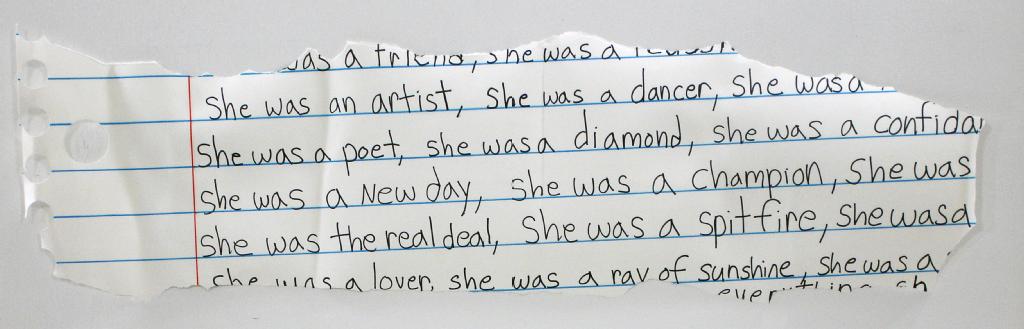 was a friend, she was a
She was an artist, She was a dancer, She was a
She was a poet, she was a diamond, she was a confida
She was a New day, She was a Champion, She was
She was the real deal, She was a spitfire, She was a
she was a lover, she was a ray of sunshine, she was a
everything